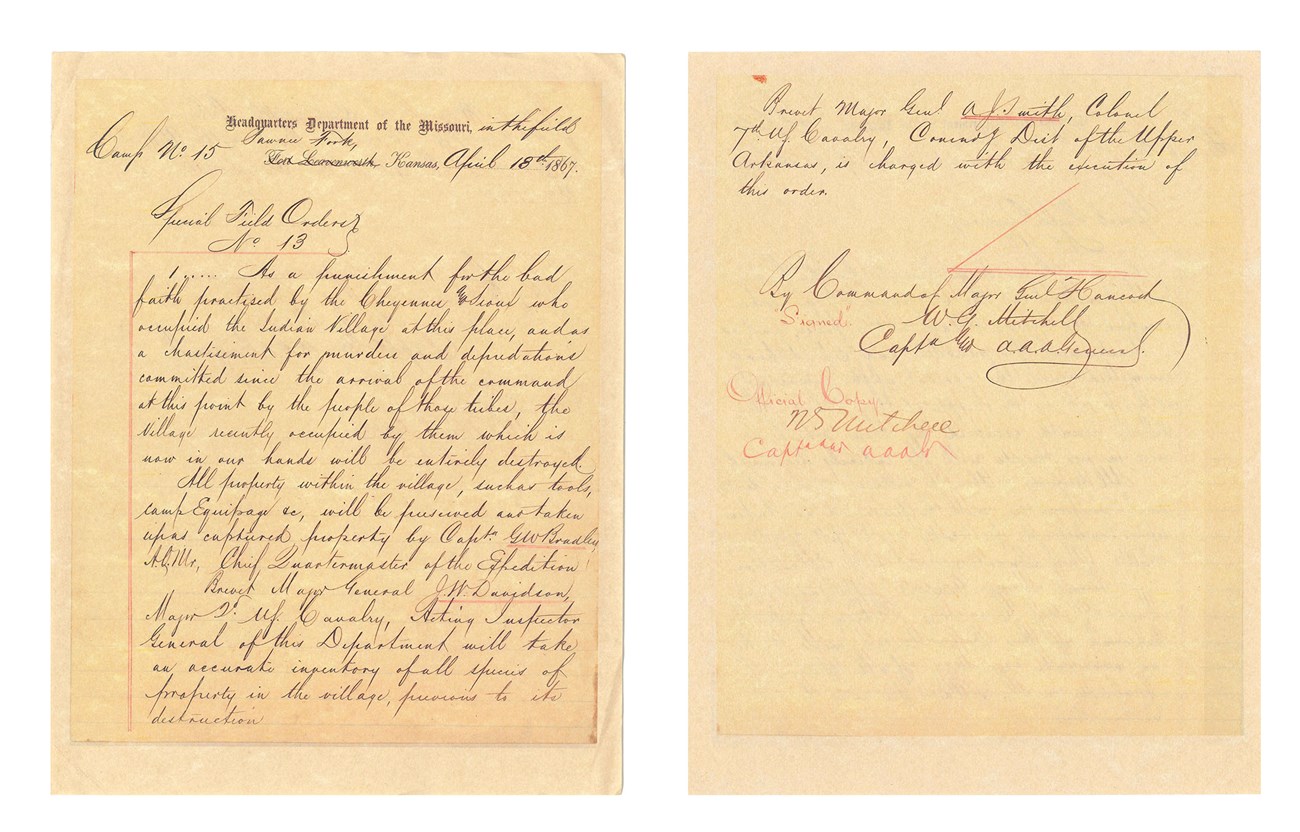 Headquarters Department of the Missouri, in the field
Camp No. 15 Pawnee Fork,
Fort Leavenworth, Kansas, April 18th 1867.
Special Field Orders
No. 13
1..... As a punishment for the bad
faith practised by the Cheyennes & Sioux who
occupied the Indian Village at this place, and as
a chastisement for murders and depredations
committed since the arrival of the command
at this point by the people of those tribes, the
Village recently occupied by them which is
now in our hands will be entirely destroyed.
All property within the village, such as tools,
camp Equipage &c, will be preserved and taken
up as captured property by Capt. G W Bradley,
A.Q.Mr, Chief Quartermaster of the Expedition
Brevet Major General J. W. Davidson,
Major 2d U.S. Cavalry, Acting Inspector
General of this Department will take
an accurate inventory of all species of
property in the village, previous to its
destruction
Brevet Major Genl A J Smith, Colonel
7th U.S. Cavalry, Comndg Dist of the Upper
Arkansas, is charged with the execution of
this order.
By Command of Major Genl Hancock
"Signed" W. G. Mitchell
Capt & a.a.a. General.
Official Copy.
W G Mitchell
Capt and a a a G